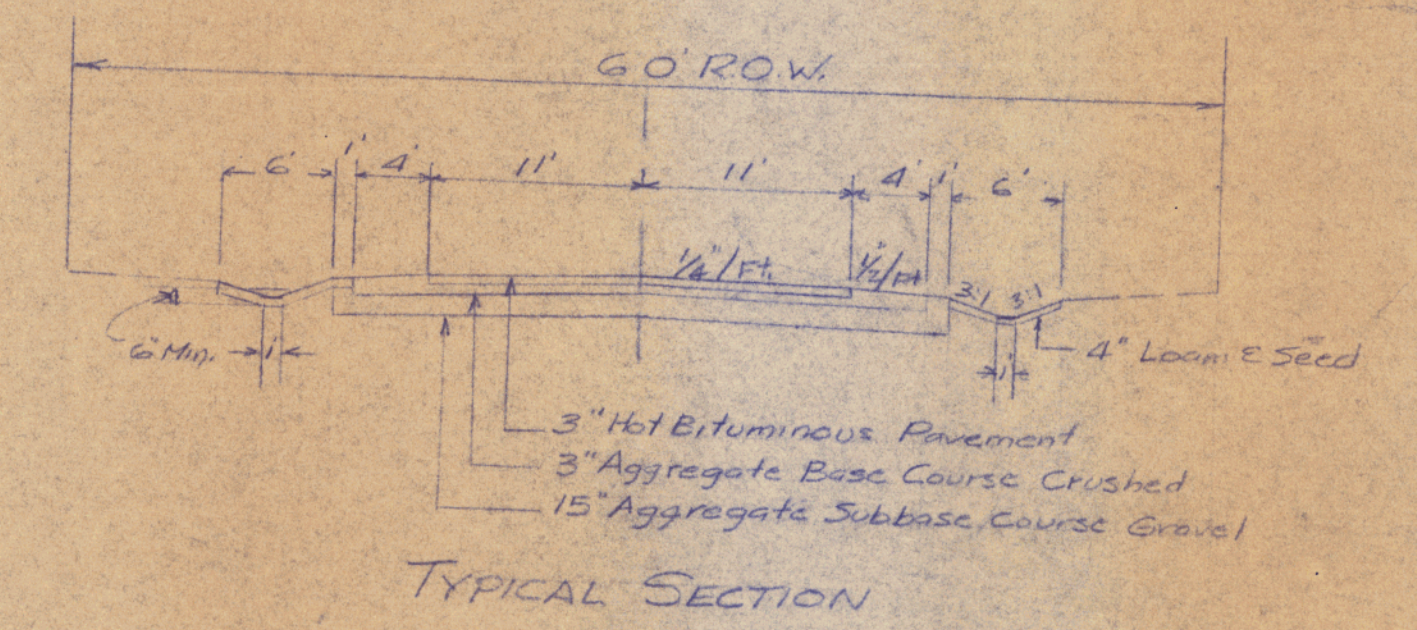 60' R.O.W.
6' 1' 4' 11' 11' 4' 1' 6'
1/4"/Ft. 1/2"/Ft
3:1 3:1
6" Min. 1' 1' 4" Loam & Seed
3" Hot Bituminous Pavement
3" Aggregate Base Course Crushed
15" Aggregate Subbase Course Gravel
TYPICAL SECTION